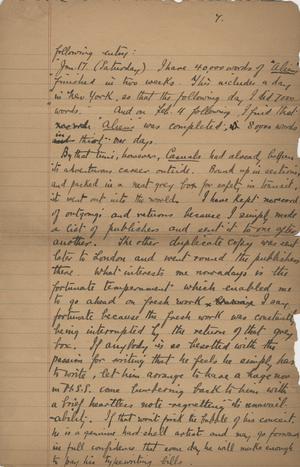 7.
following entry:
Jan. 17 (Saturday) I have 40,000 words of "Aliens"
finished in two weeks. This includes a day
in New York, so that the following day I did 7000
words." And on Feb. 4 following I find that
"Aliens was completed, 8000 words
in that one days.
By that time, however, Casuals had already begun
its adventurous career outside. Bound up in sections,
and packed in a neat grey box for safety in transit,
it went out into the world. I have kept no record
of outgoings and returns because I simply made
a list of publishers and sent it to one after
another. The other duplicate copy was sent
later to London and went round the publishers
there. What interests me nowadays is the
fortunate temperament which enabled me
to go ahead on fresh work. I say
fortunate because the fresh work was constantly
being interrupted by the return of that grey
box. If anybody is so besotted with the
passion for writing that he feels he simply has
to write, let him arrange to have a huge
MSS. come lumbering back to him with
a brief heartless note "regretting" its unavail-
-ability. If that won't prick the bubble of his conceit
he is a genuine hard shell artist and may go forward
in full confidence that some day he will make enough
to pay his typewriting bills.